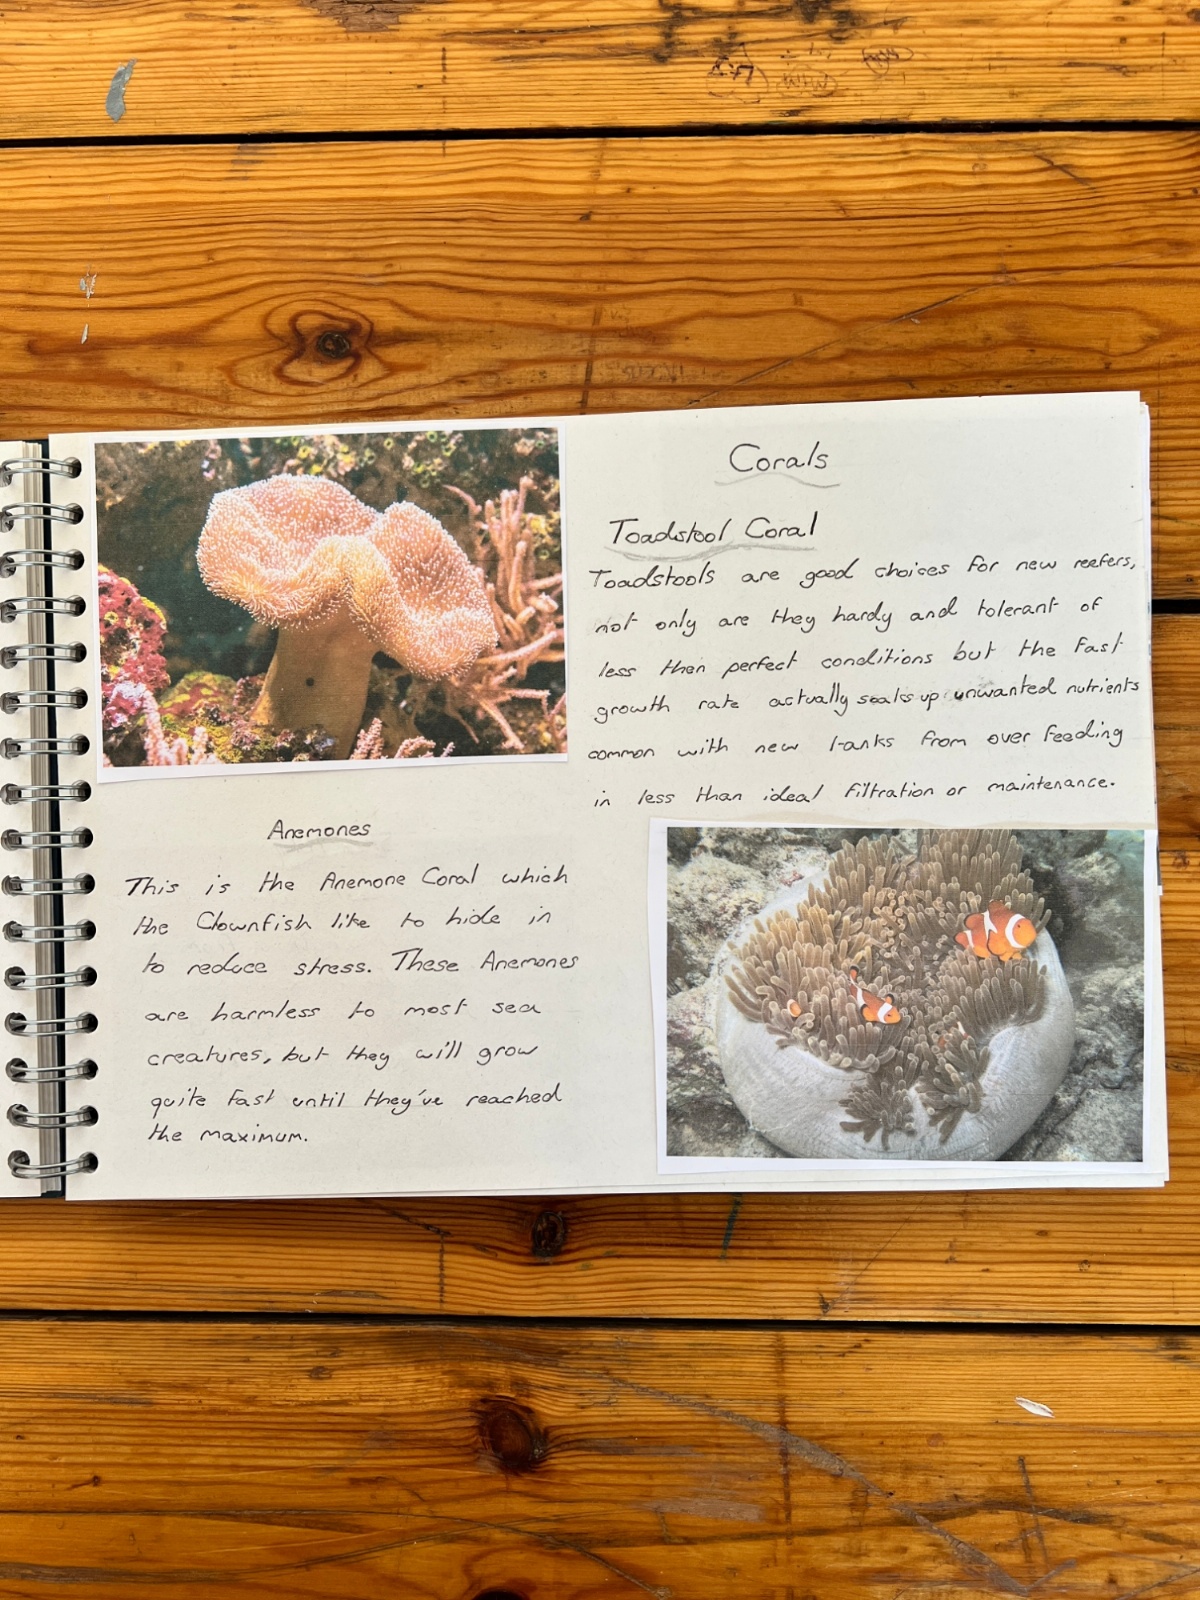 Corals
Toadstool Coral
Toadstools are good choices for new reefers,
not only are they hardy and tolerant of
less then perfect conditions but the fast
growth rate actually soaks up unwanted nutrients
common with new tanks from over feeding
in less than ideal filtration or maintenance.
Anemones
This is the Anemone Coral which
the Clownfish like to hide in
to reduce stress. These Anemones
are harmless to most sea
creatures, but they will grow
quite fast until they've reached
the maximum.